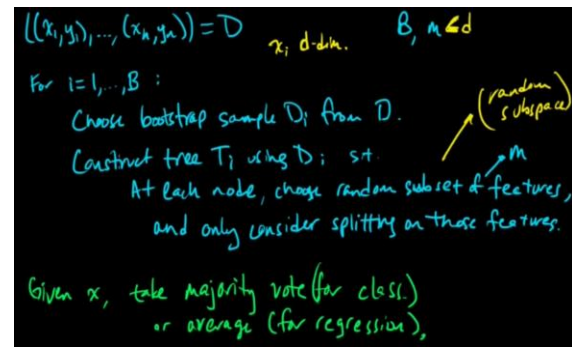 ((x₁,y₁),...,(xₙ,yₙ)) = D   xᵢ d-dim.   B, m<d
For i=1,...,B :
Choose bootstrap sample Dᵢ from D.
(random subspace)
Construct tree Tᵢ using Dᵢ s.t.
m
At each node, choose random subset of features,
and only consider splitting on those features.
Given x, take majority vote (for class.)
or average (for regression).